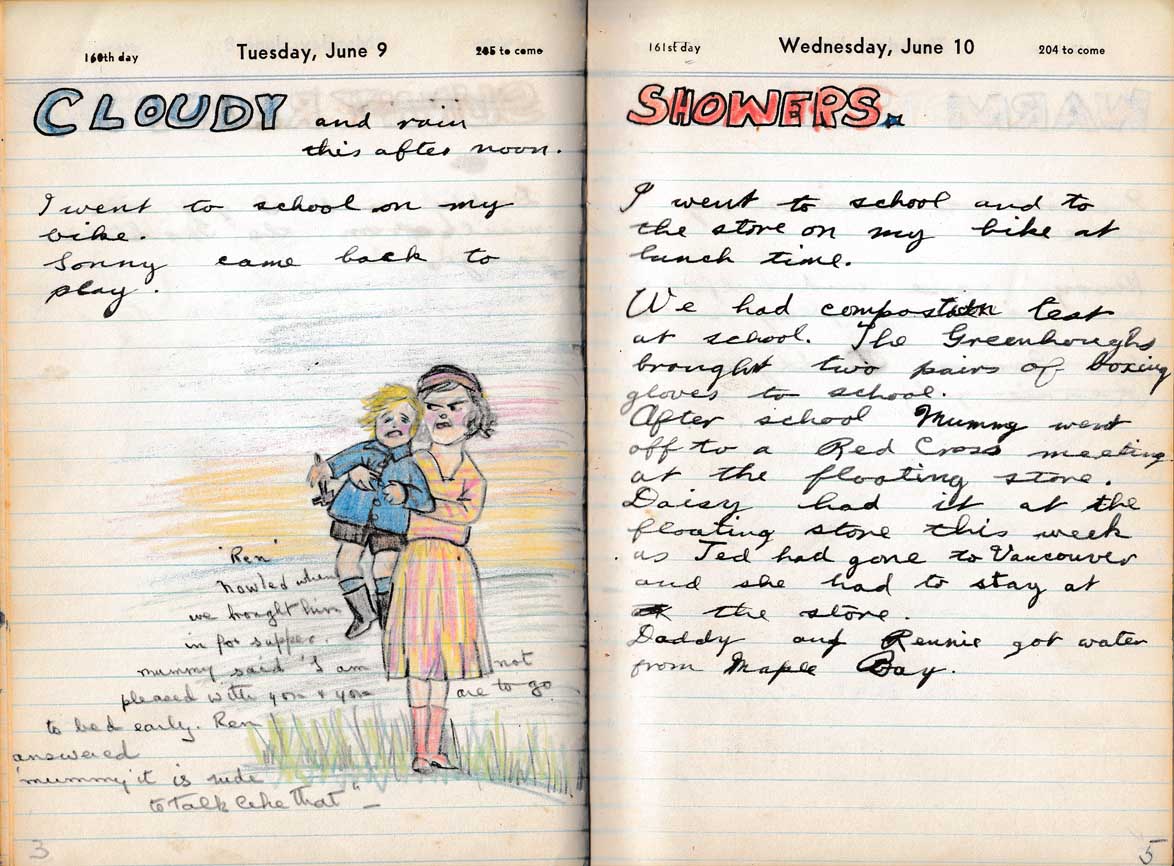 160th day Tuesday, June 9 205 to come
CLOUDY and rain
this after noon.
I went to school on my
bike.
Sonny came back to
play.
'Ren'
howled when
we brought him
in for supper.
mummy said 'I am not
pleased with you & you are to go
to bed early. Ren
answered
'mummy it is rude
to talk like that" –
3
161st day Wednesday, June 10 204 to come
SHOWERS.
I went to school and to
the store on my bike at
lunch time.
We had compostion test
at school. The Greenhoughs
brought two pairs of boxing
gloves to school.
After school Mummy went
off to a Red Cross meeting
at the floating store.
Daisy had it at the
floating store this week
as Ted had gone to Vancouver
and she had to stay at
the store.
Daddy and Rennie got water
from Maple Bay.
5